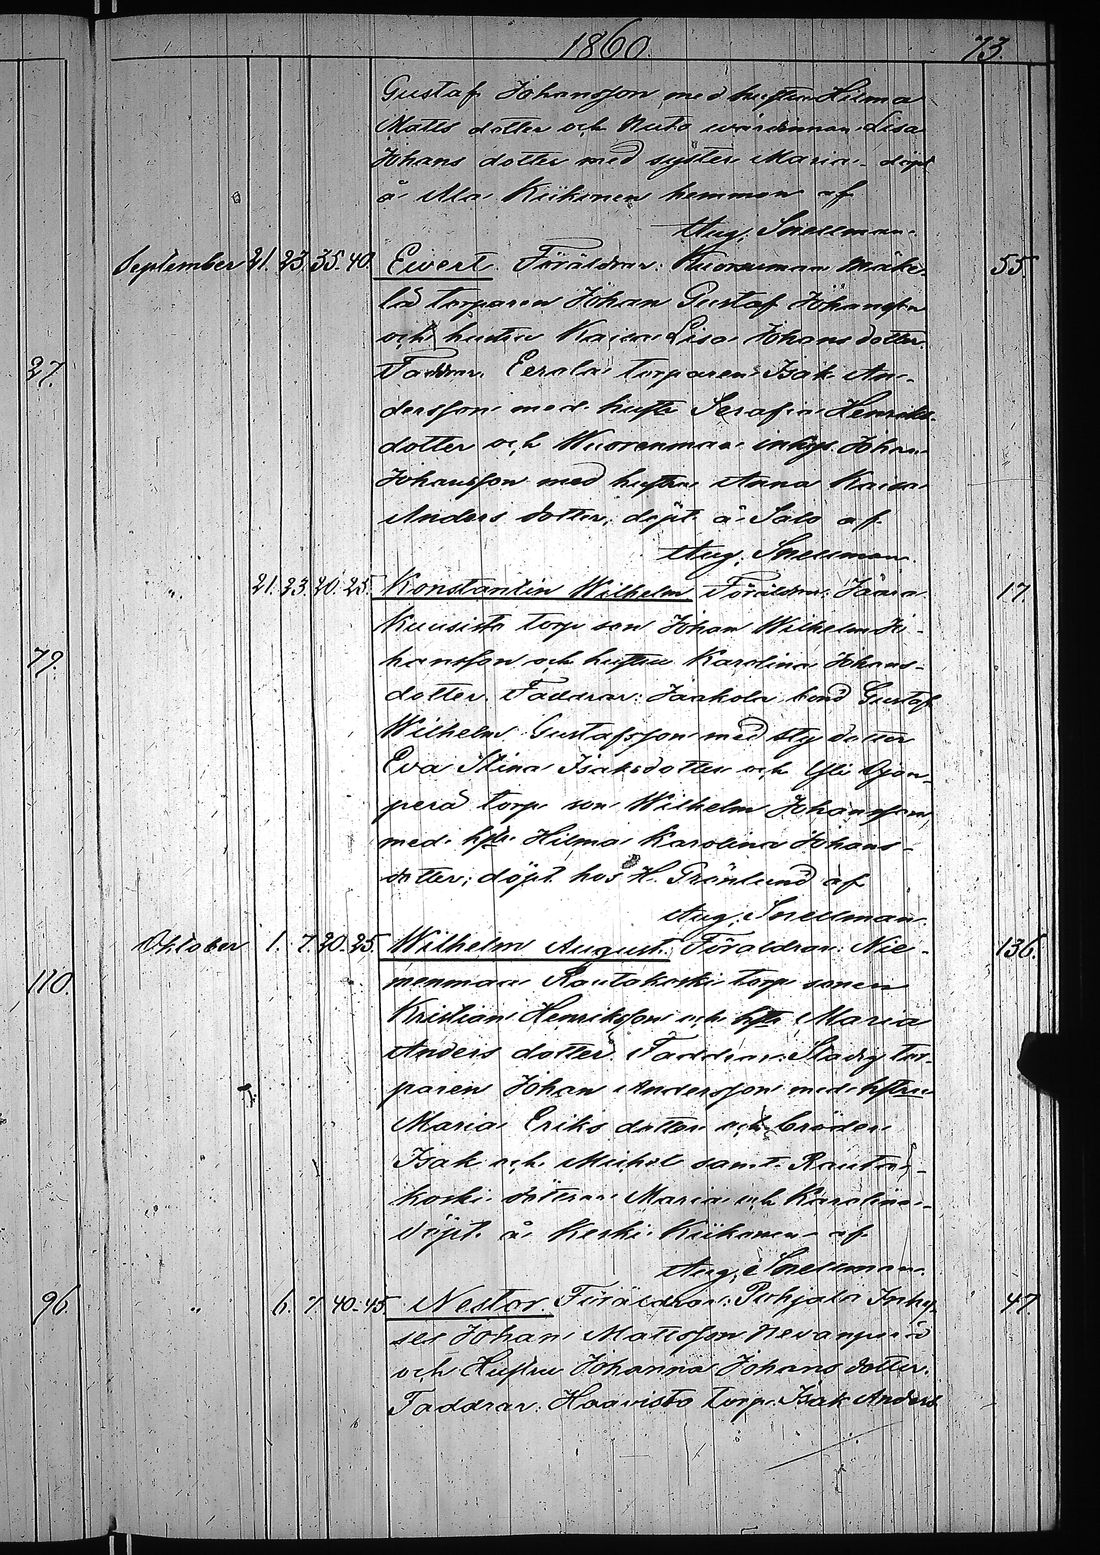 1860.
73.
Gustaf Johansson med hustru Hilma
Matts dotter och Nuto wärdinnan Lisa
Johans dotter med syster Maria döpt
å Ala Kiikonen hemman af
Aug. Snellman.
September 21. 23. 35.-40. Ewert. Föräldrar: Wuorenmaa Mäke- 55.
lä torparen Johan Gustaf Johansson
och hustru Kaisa Lisa Johans dotter.
27.
Faddrar. Eerola torparen Isak An-
dersson med hustr. Serafia Henriks
dotter och Wuorenmaa inhys. Johan
Johansson med hustru Anna Kaisa
Anders dotter, döpt å Salo af
Aug. Snellman.
" 21. 23. 20.-25. Konstantin Wilhelm Föräldrar: Jaara 17.
Kuusisto torp son Johan Wilhelm Jo-
79.
hansson och hustru Karolina Johans-
dotter. Faddrar: Jaakola bond Gustaf
Wilhelm Gustafsson med sty dotter
Eva Stina Isaksdotter och Yli
perä torp son Wilhelm Johansson,
med hstr. Hilma Karolina Johans-
dotter; döpt hos H. Grönlund af
Aug. Snellman
Oktober 1. 7. 20.-25. Wilhelm August. Föräldrar: Nie- 136.
110.
menmaa Rautakoski torp sonen
Kristian Henriksson och hstr Maria
Anders dotter. Faddrar: tor-
paren Johan Andersson med hstru
Maria Eriks dotter och bröder
Isak och Michel samt Rauta-
koski döttrar Maria och Karolina
döpt å Keski Kiikonen af
Aug. Snellman.
96.
" 6. 7. 40.-45. Nestor. Föräldrar: Pohjala Inhy- 47.
ses Johan Mattsson Nevanperä
och Hustru Johanna Johans dotter.
Faddrar: Haavisto torp. Isak Anders